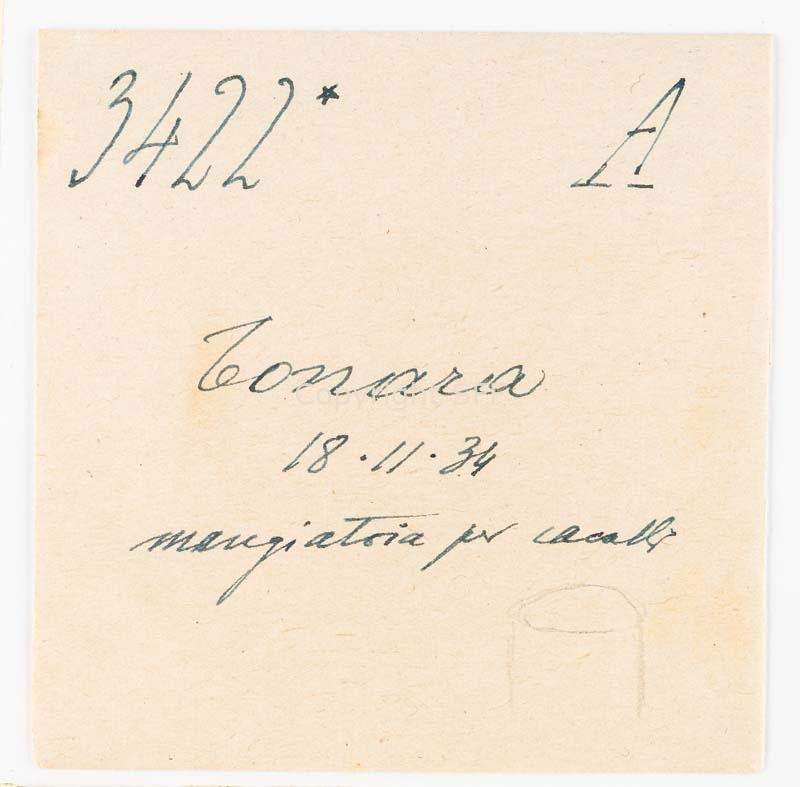 3422* A
Tonara
18.11.34
mangiatoia per cavalli